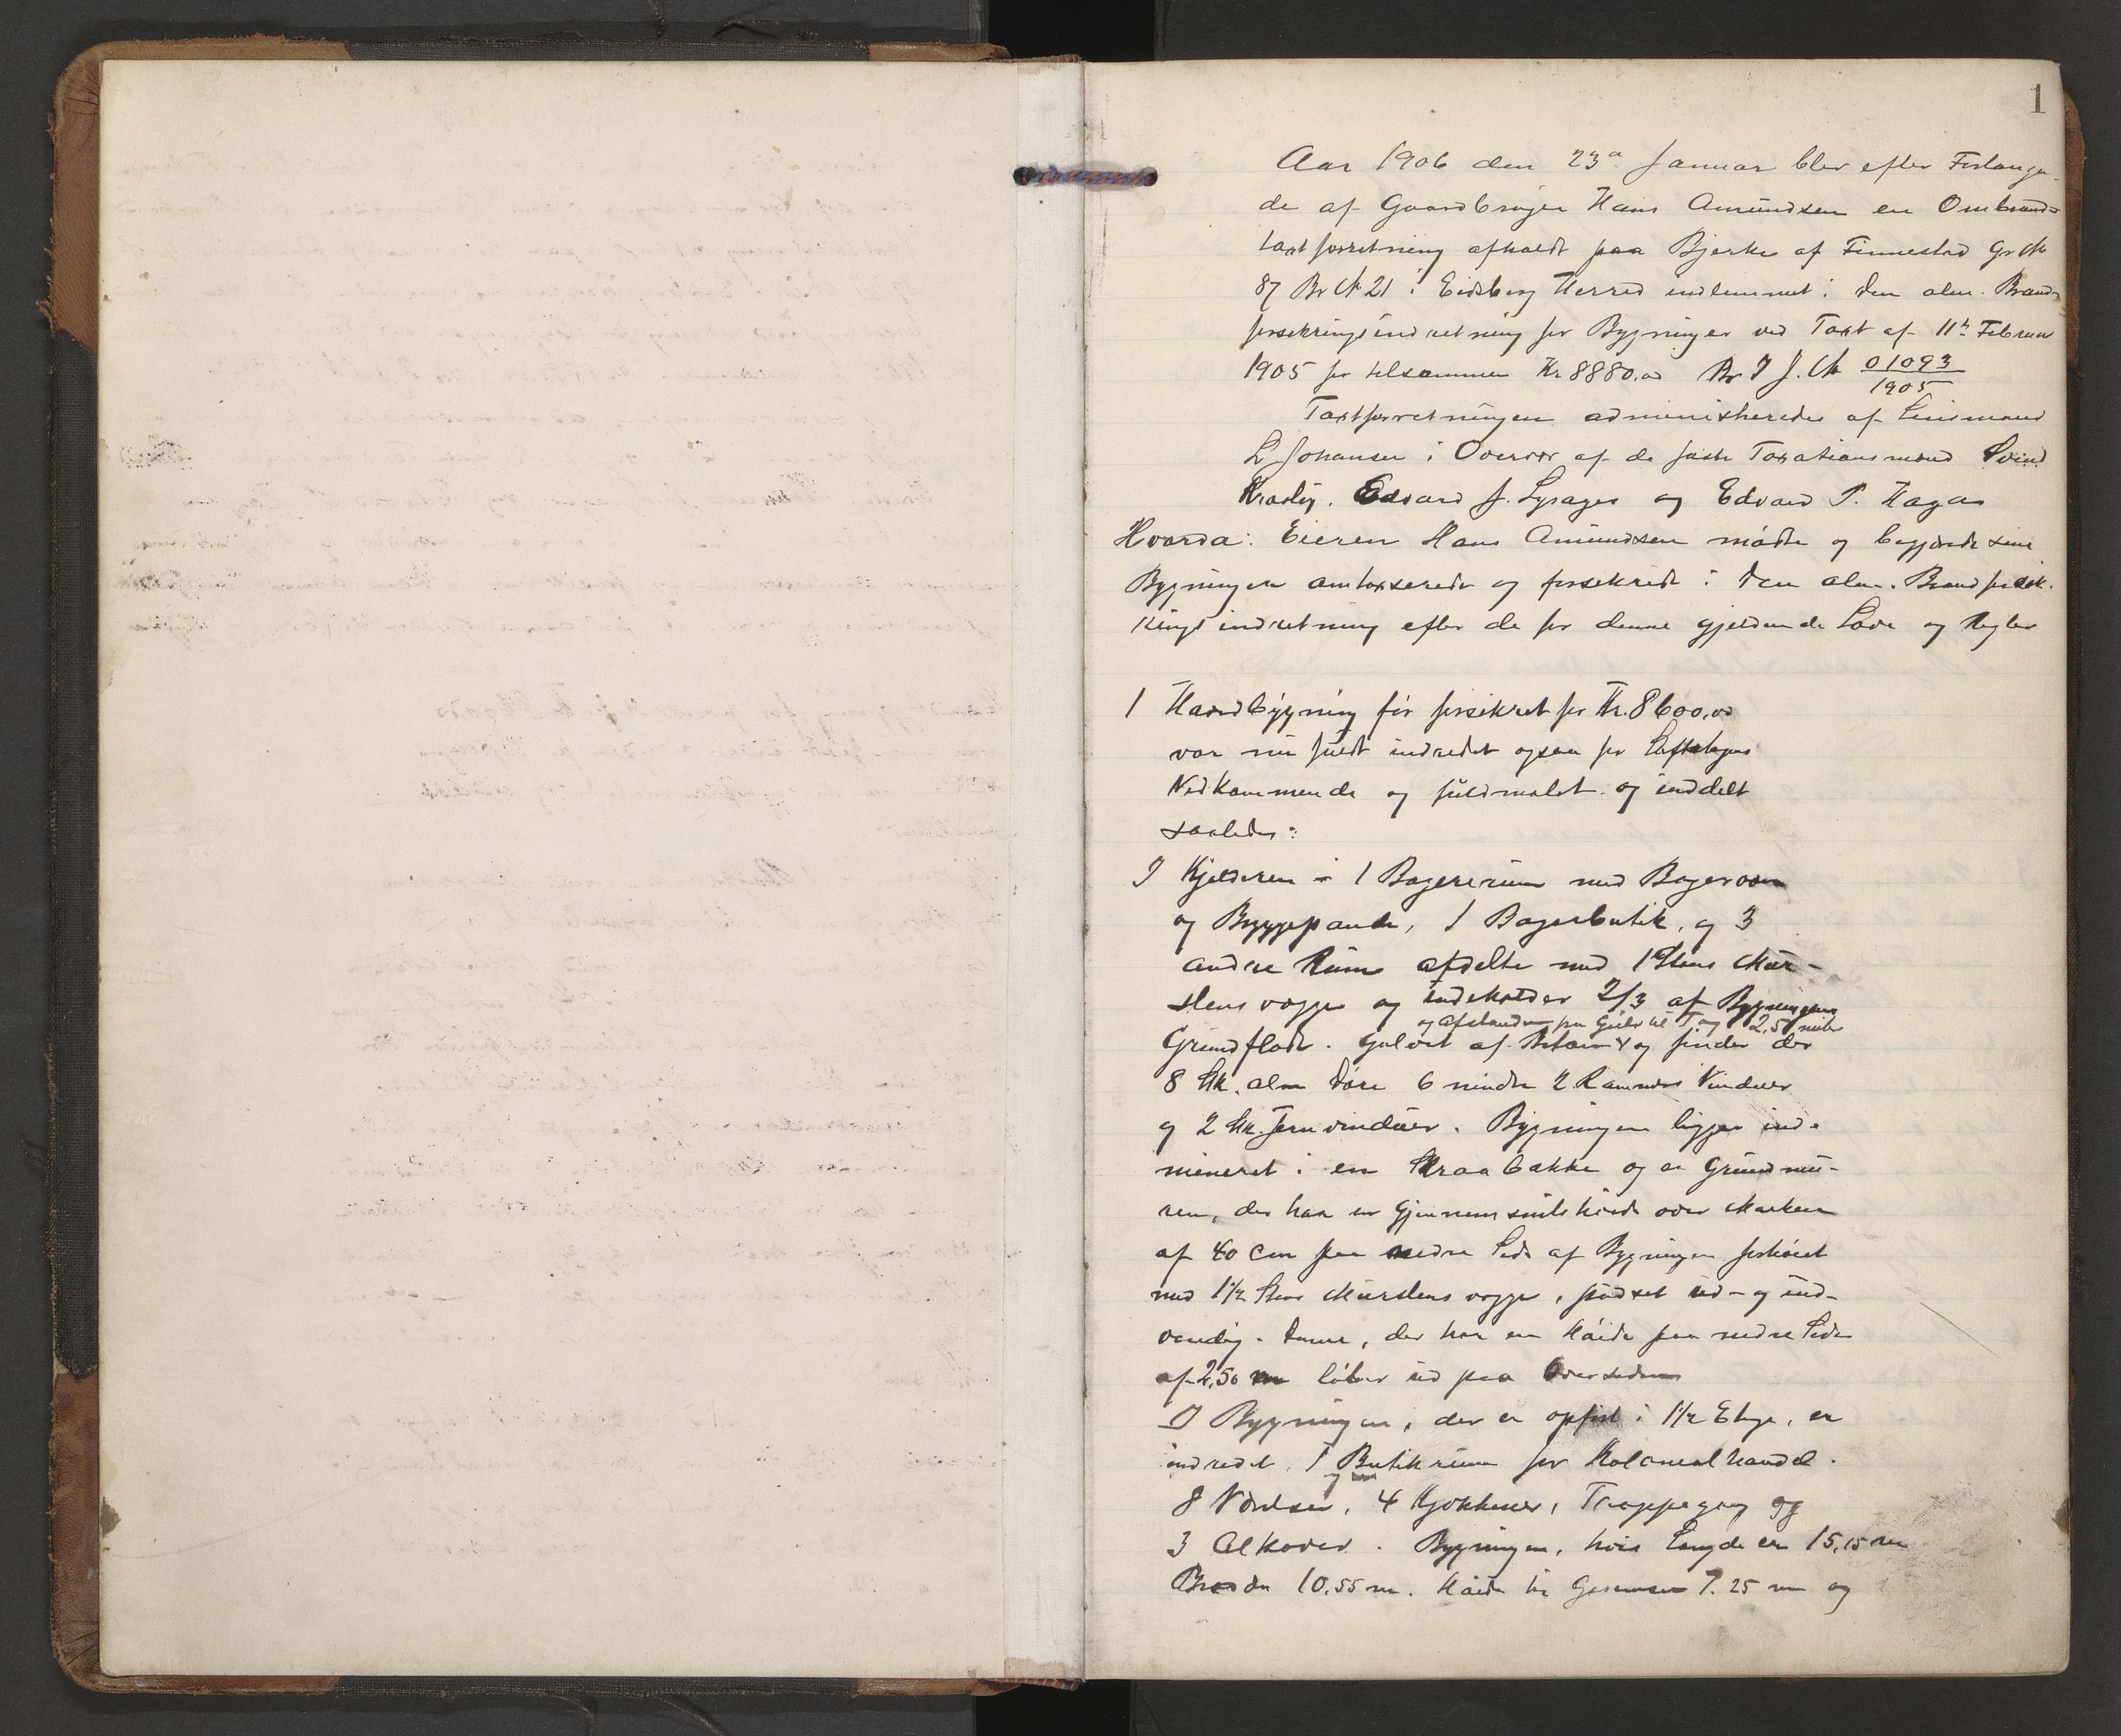 1
Aar 1906 den 23de Januar blev efter Forlangen-
de af Gaardbruger Hans Amundsen en Ombrand-
taxtforretning afholdt paa Bjerke af Finnestad Gr №
87 Br № 21 i Eidsberg Herred indlemmet i den alm. Brand-
forsikringsindretning for Bygninger ved Taxt af 11te Februar
1905 for tilsammen Kr 8880,00 Br J. № 01093/1905
Taxtforretningen administreredes af Lensmand
L Johansen i Overvær af de faste Taxationsmænd Svend
Edvard J. Lysager og Edvard P. Hagas
Hvorda: Eieren Hans Amundsen mødte og begjærede sine
Bygninger omtaxerede og forsikrede i den alm. Brandforsik-
rings indretning efter de for denne gjeldende Love og Regler
1 Vaandbygning før forsikret for Kr. 8600,00
var nu fuldt indredet ogsaa for Loftetagens
Vedkommende og fuldmalet og inddelt
saaledes:
I Kjelderen - 1 Bagerirum med Bagerovn
og Bryggepande, 1 Bagerbutik, og 3
andre Rum afdelte med 1 Stens Mur-
stens vægge og indeholder 2/3 af Bygningens
og afstanden fra Gulv til Tag 2,50 meter
Grundflade. Gulvet af Beton og finder der
8 Stk. alm Døre 6 mindre 2 Rammers Vinduer
og 2 Stk. Jernvinduer. Bygningen ligger ind-
mineret i en Skraabakke og er Grundmu-
ren, der har en Gjennemsnitshøide over Marken
af 40 cm paa nedre Side af Bygningen forhøiet
med 1 1/2 Stens Murstens vægge, pudset ud- og ind-
vendig. Denne, der har en Høide paa nedre Side
af 2,50 m løber ud paa Oversiden
I Bygningen, der er opført i 1 1/2 Etage, er
indredet 1 Butikrum for Kolonialhandel
og
8 Værelser, 4 Kjøkkener, Trappegang og
3 Alkover. Bygningen, hvis Længde er 15,15 m
Bredde 10,55 m. Høide til Gesimsen 7.25 m og